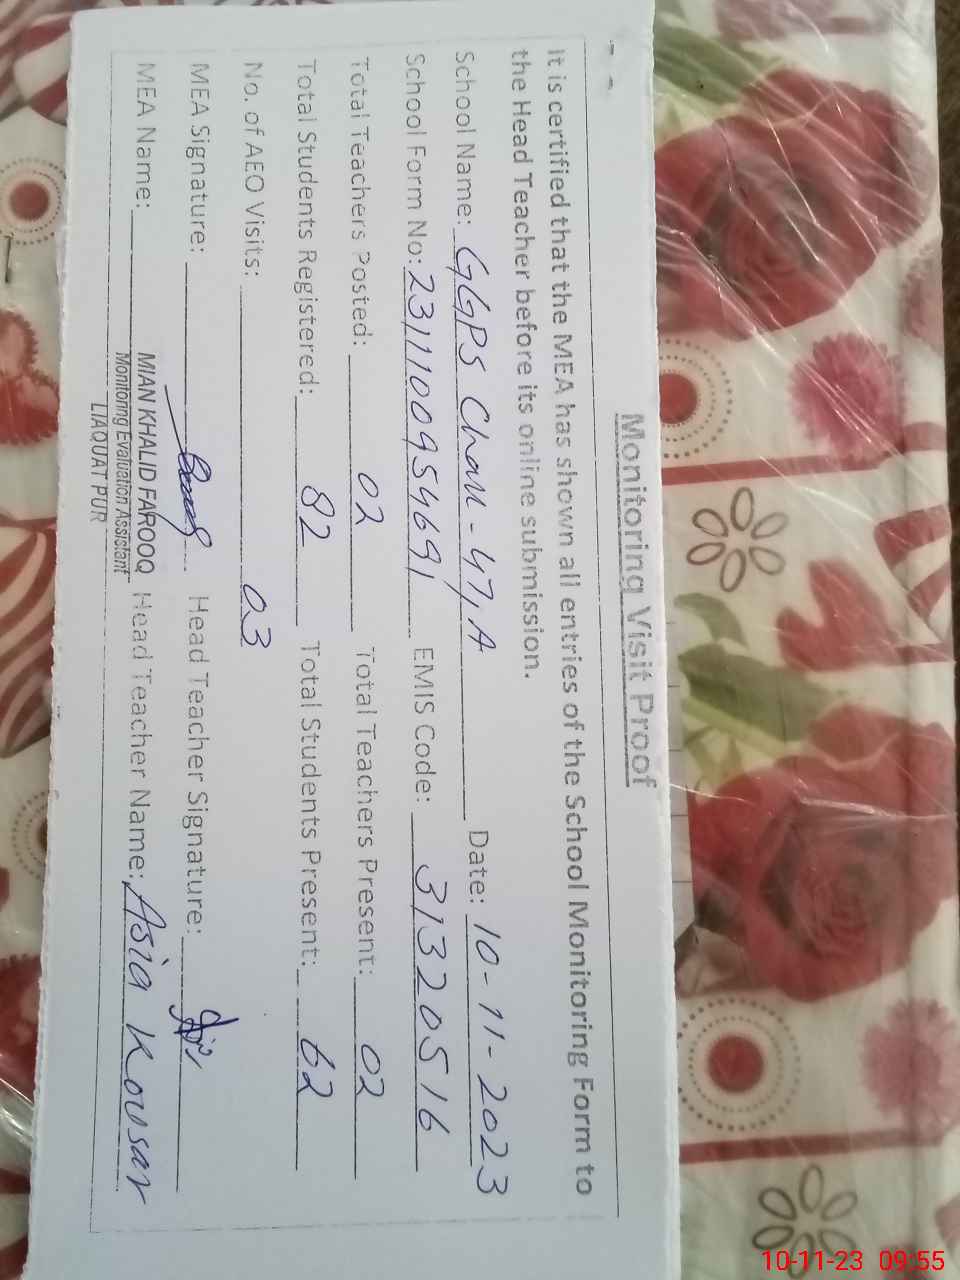 Monitoring Visit Proof
It is certified that the MEA has shown all entries of the School Monitoring Form to
the Head Teacher before its online submission.
School Name: GGPS Chak - 47, A Date: 10-11-2023
School Form No: 23111009954691 EMIS Code: 31320516
Total Teachers Posted: 02 Total Teachers Present: 02
Total Students Registered: 82 Total Students Present: 62
No. of AEO Visits: 03
MEA Signature: Head Teacher Signature:
MEA Name: MIAN KHALID FAROOQ Head Teacher Name: Asia Kousar
Monitoring Evaluation Assistant
LIAQUAT PUR
10-11-23 09:55